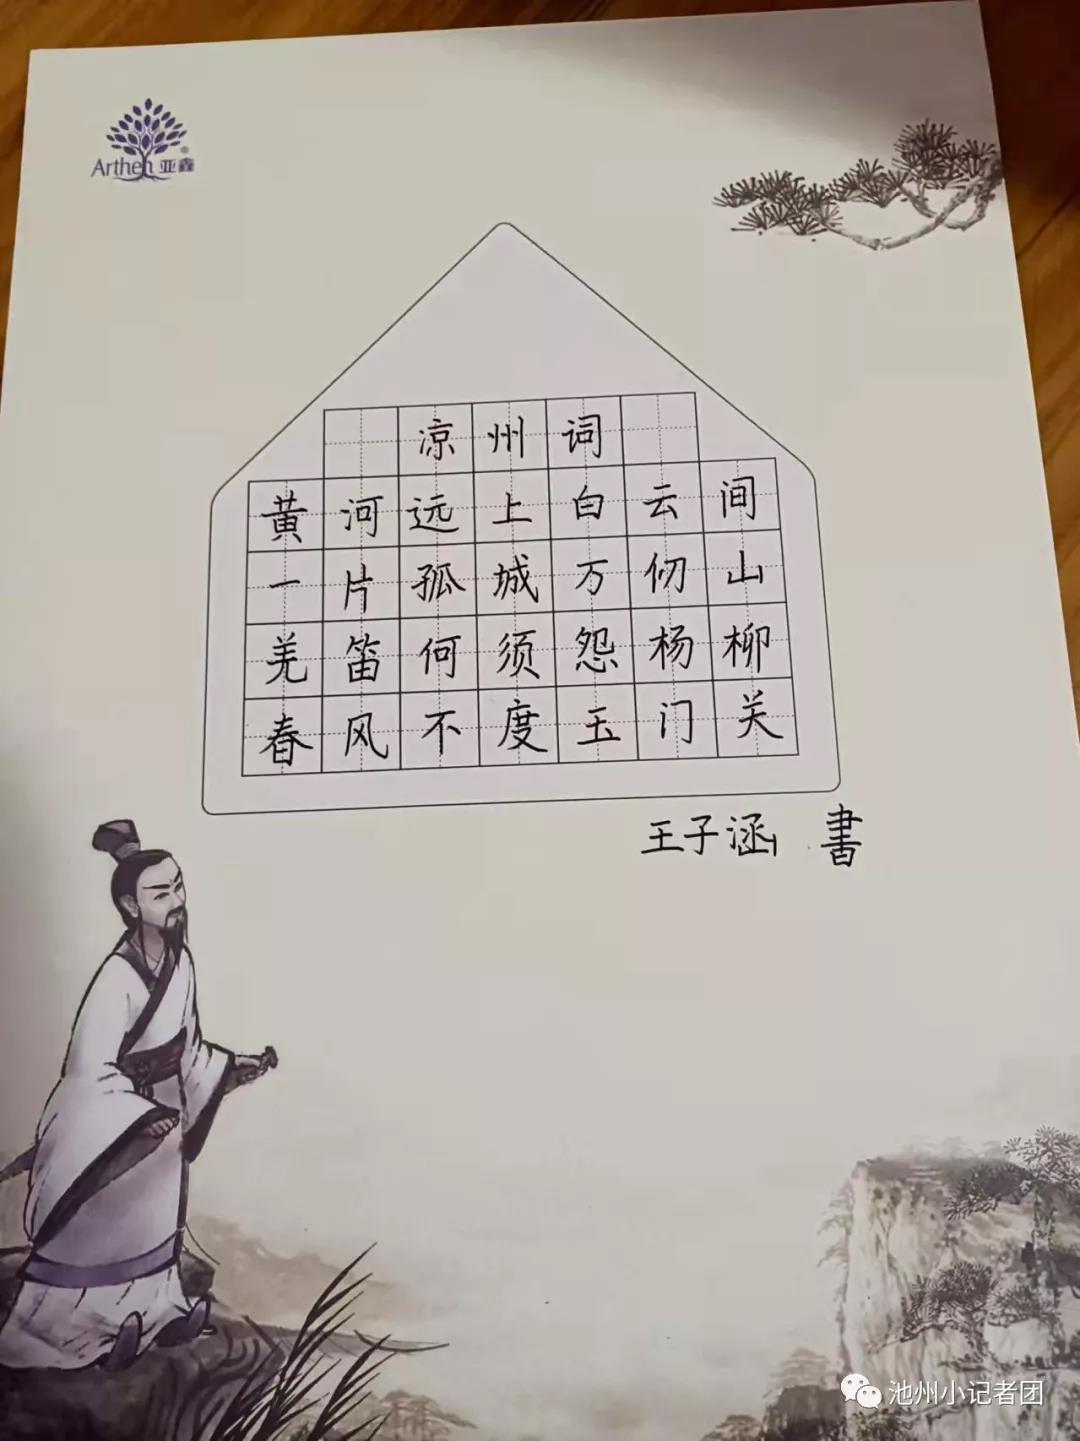 Arthen 亚鑫®
凉州词
黄河远上白云间
一片孤城万仞山
羌笛何须怨杨柳
春风不度玉门关
王子涵 書
池州小记者团